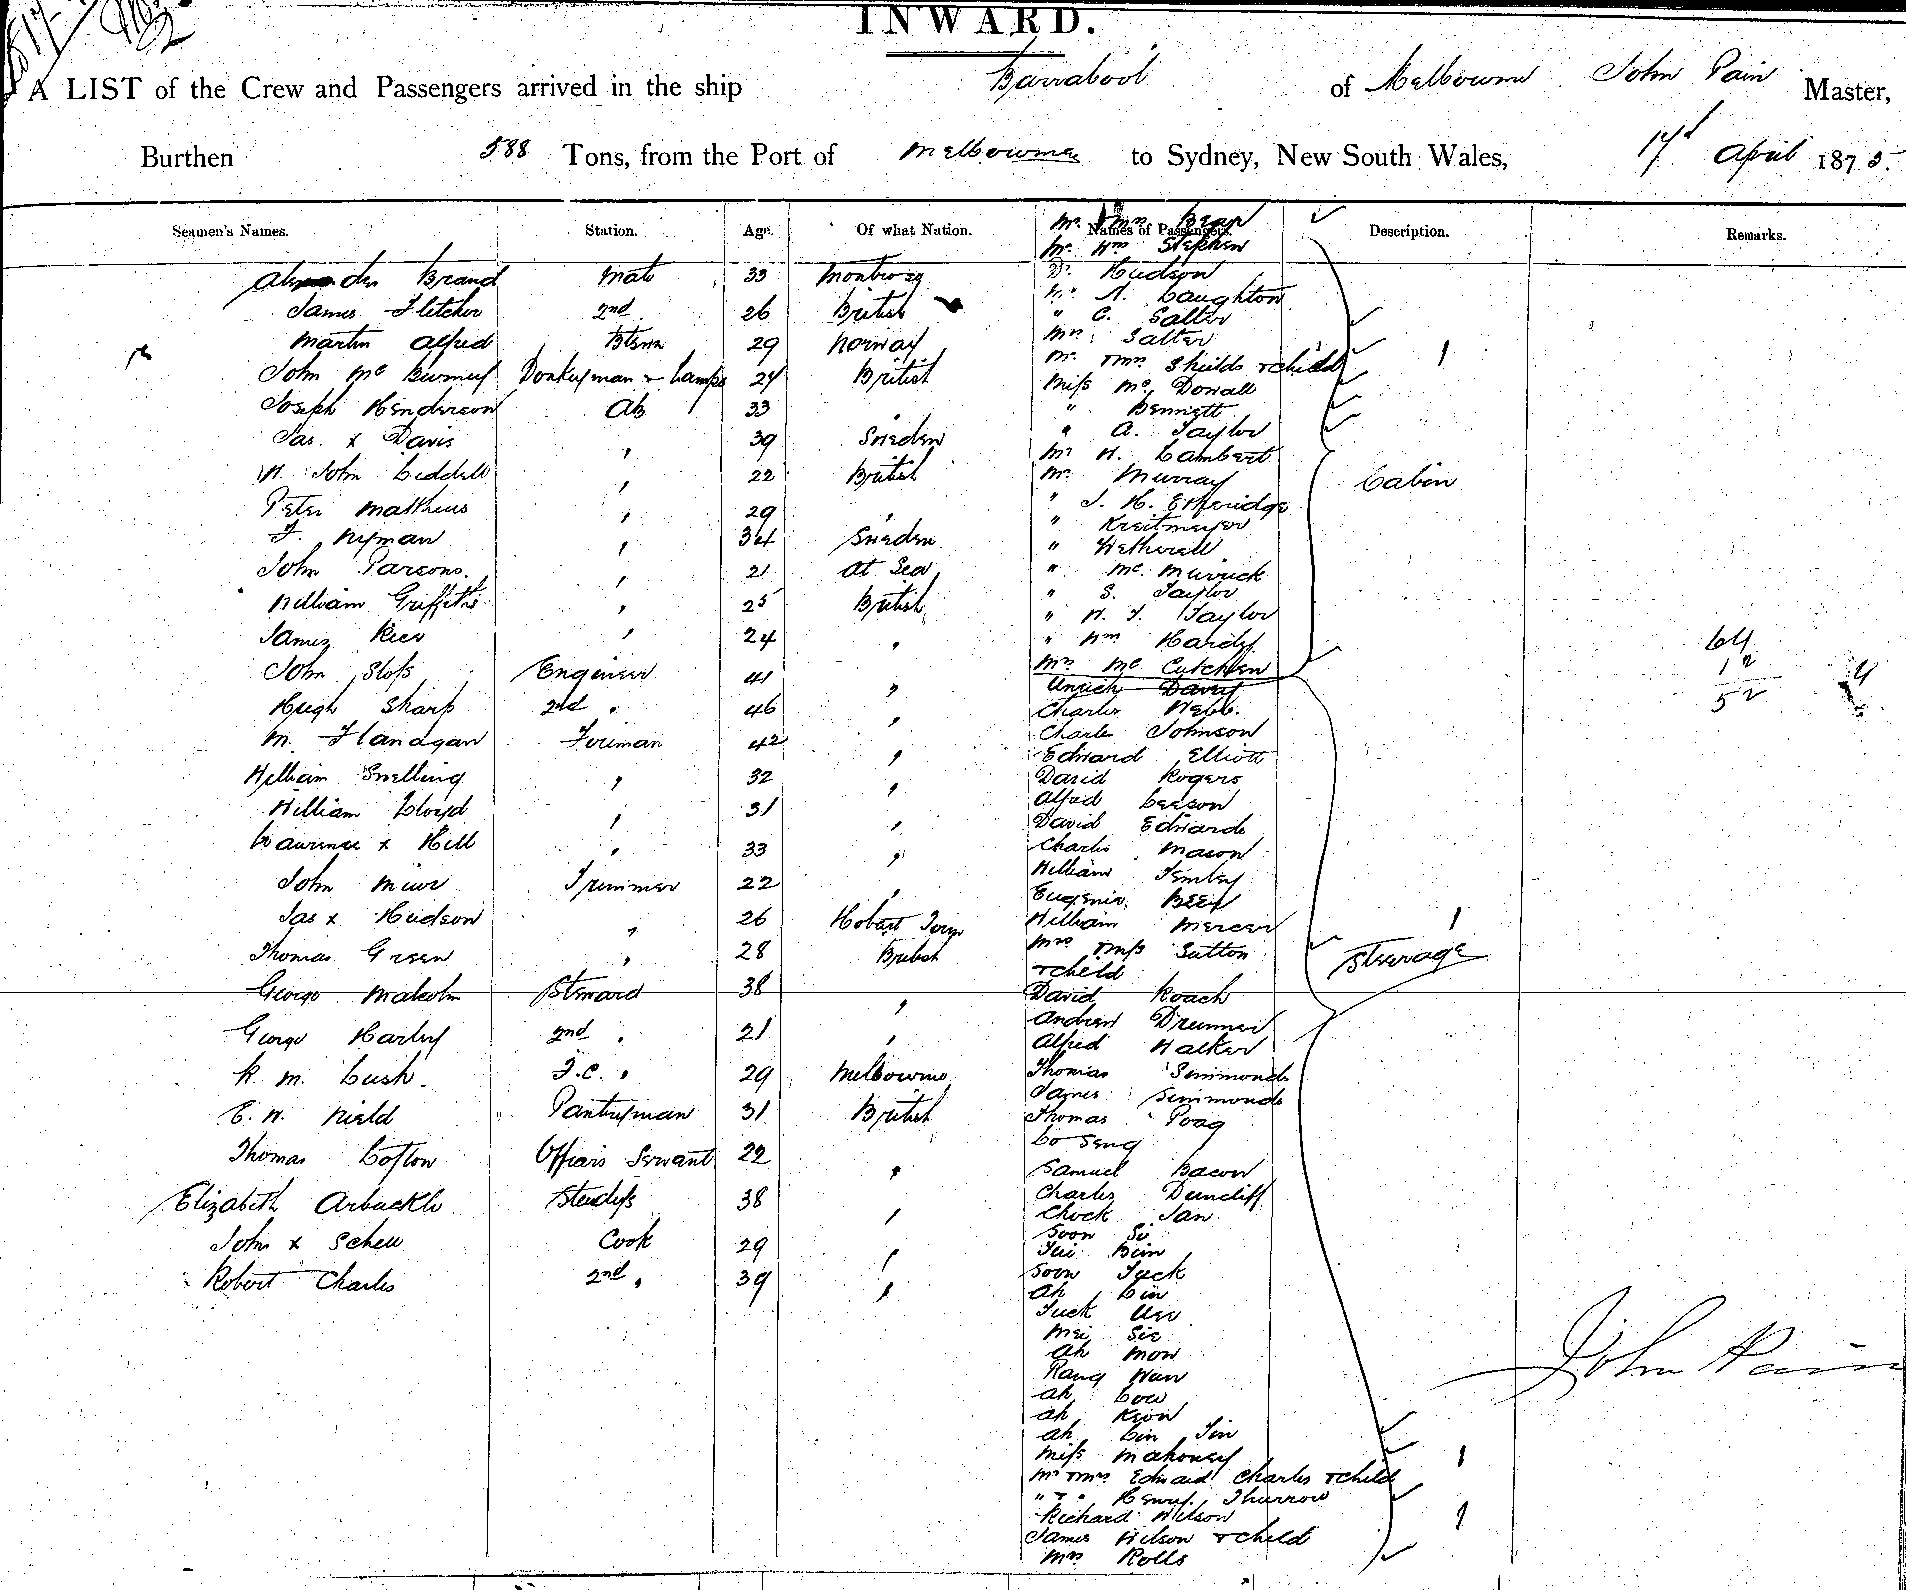 INWARD.
A LIST of the Crew and Passengers arrived in the ship Barrabool of Melbourne John Pain Master,
Burthen 588 Tons, from the Port of Melbourne to Sydney, New South Wales, 17th April 1875.
Seamen's Names. Station. Age. Of what Nation. Names of Passengers. Description. Remarks.
Brand Mate 33 Montrose
James Fletcher 2nd 26 British
Martin Alfred 29 Norway
John Mc Donkeyman & Lamps 24 British
Joseph Henderson Ab 33 "
Jas. x Davis " 39 Sweden
John Liddell " 22 British
Peter Matthews " 29 "
F. Nyman " 34 Sweden
John Parsons. " 21 At Sea
William Griffiths " 25 British
James Rees " 24 "
John Sloss Engineer 41 "
Hugh Sharp 2nd " 46 "
M. Flanagan Fireman 42 "
William Snelling " 32 "
William Lloyd " 31 "
Laurence x Hill " 33 "
John Muir Trimmer 22 "
Jas x Hudson " 26 Hobart Town
Thomas Green " 28 British
George Malcolm Steward 38 "
George Harley 2nd " 21 "
R. M. Lush. F.C. " 29 Melbourne
E. W. Nield Pantryman 31 British
Thomas Lofton Officers Servant 22 "
Elizabeth Arbuckle Stewdess 38 "
John x Schell Cook 29 "
Robert Charles 2nd " 39 "
Mr & Mrs Bear
Mr Wm Stephen
Dr. Hudson
Mr. A. Laughton
" C. Salter
Mrs Salter
Mr. & Mrs Shields & child
Miss Mc Dowall
" Bennett
" A. Taylor
Mr H. Lambert
Mr. Murray
" J. H. Etheridge
" Kreitmeyer
" Wetherall
" Mc
" S. Taylor
" H. J. Taylor
" Wm Hardy
Mrs Mc Cutcheon
Cabin
Davey
Charles Webb.
Charles Johnson
Edward Elliott
David Rogers
Alfred Leeson
David Edwards
Charles Mason
William Tembey
William Mercer
Mrs & Miss Sutton
& child
David Roach
Andrew Drummer
Alfred Walker
Thomas Simmonds
James Simmonds
Thomas Poag
Lo Seng
Samuel Bacon
Charles Duncliff
Chock Jan
Soon Si
Tui Bin
Soon Tuck
Ah Lin
Tuck
Mei Sie
Ah Mow
Kang Wan
Ah Low
Ah Keon
Ah Lin Tin
Miss Mahoney
Mr & Mrs Edward Charles & child
" & " Henry Thurrow
Richard Wilson
James Wilson & child
Mrs Rolls
Steerage
64
12
52
John Pain